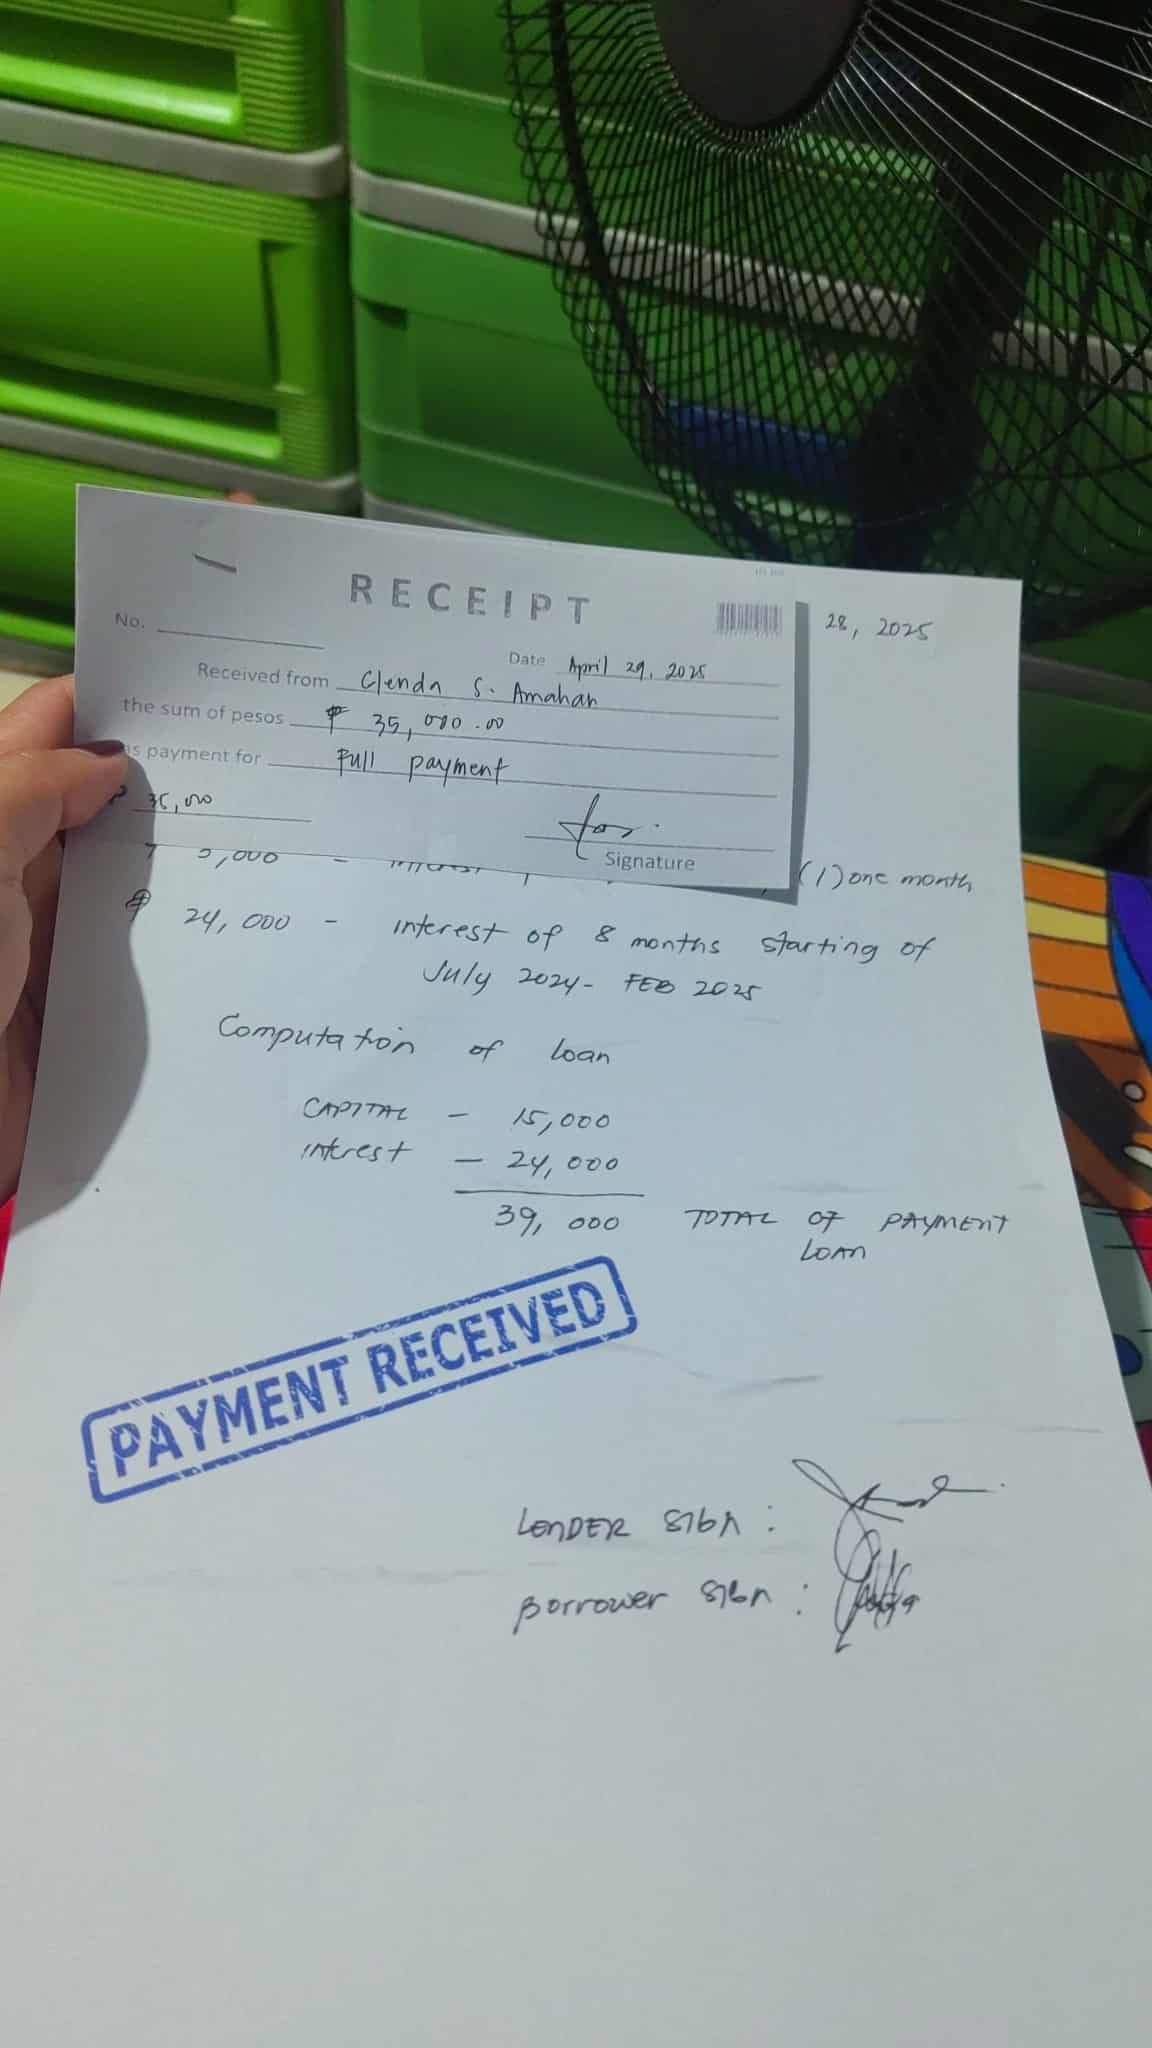 RECEIPT
No.
Date April 29, 2025
Received from Clenda S. Amahan
the sum of pesos ₱ 35,000.00
as payment for Full payment
₱ 35,000
Signature
28, 2025
₱ 3,000 - interest (1) one month
₱ 24,000 - interest of 8 months starting of
July 2024 - FEB 2025
Computation of loan
CAPITAL - 15,000
interest - 24,000
39,000 TOTAL OF PAYMENT
LOAN
PAYMENT RECEIVED
LENDER SIGN :
Borrower SIGN :